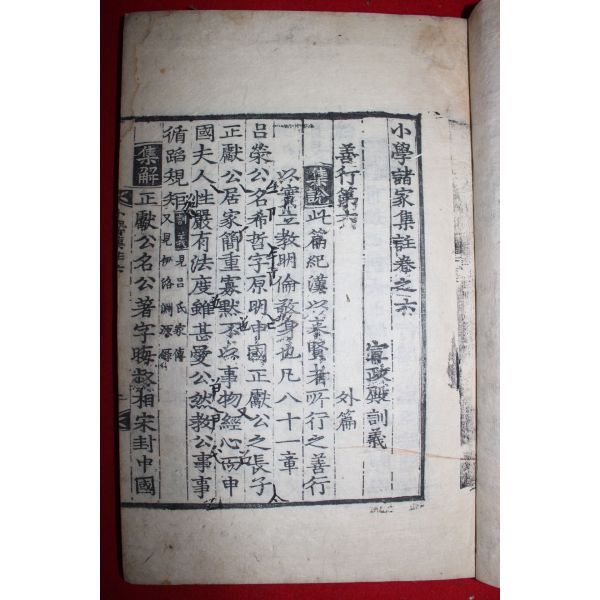 小學諸家集註卷之六
宣政殿訓義
善行第六
外篇
集說 此篇紀漢以來賢者所行之善行
以實立教明倫敬身也凡八十一章
呂滎公名希哲字原明申國正獻公之長子
正獻公居家簡重寡默不以事物經心而申
國夫人性嚴有法度雖甚愛公然敎公事事
循蹈規矩 訓義 見呂氏家傳 又見伊洛淵源錄
集解 正獻公名公著字晦叔相宋封申國